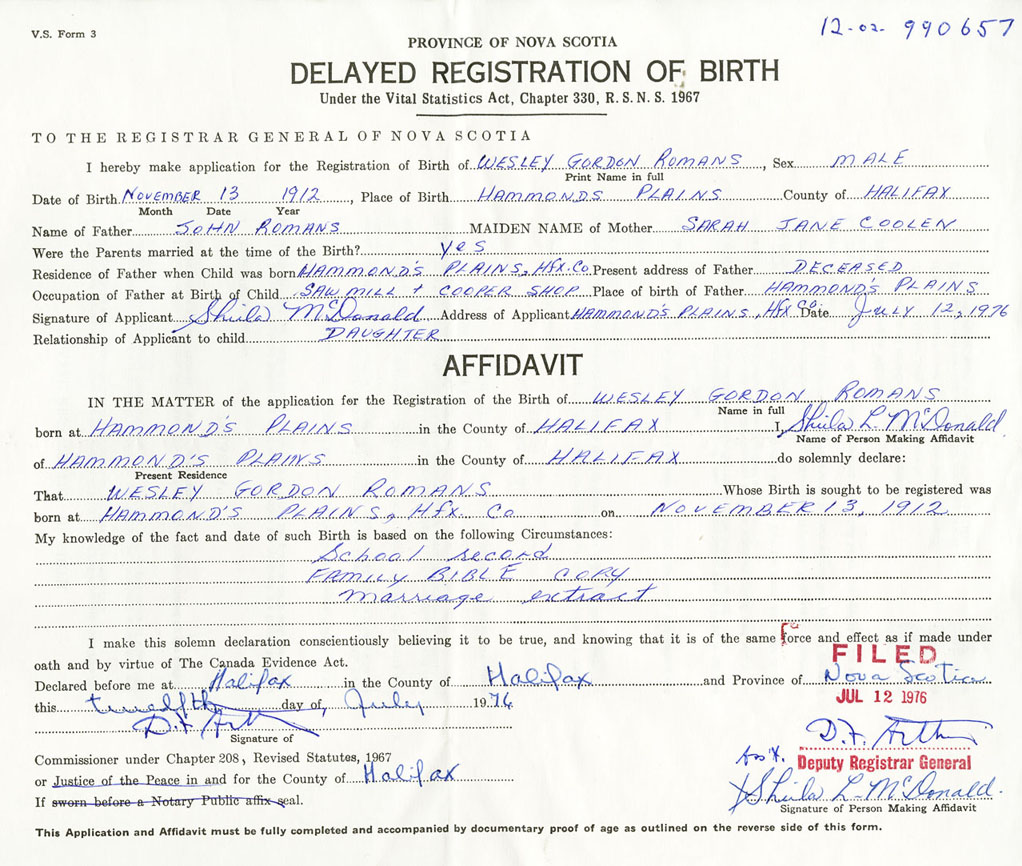 V.S. Form 3
12-02- 990657
PROVINCE OF NOVA SCOTIA
DELAYED REGISTRATION OF BIRTH
Under the Vital Statistics Act, Chapter 330, R. S. N. S. 1967
TO THE REGISTRAR GENERAL OF NOVA SCOTIA
I hereby make application for the Registration of Birth of WESLEY GORDON ROMANS, Sex MALE
Print Name in full
Date of Birth NOVEMBER 13 1912, Place of Birth HAMMONDS PLAINS County of HALIFAX
Month Date Year
Name of Father JOHN ROMANS MAIDEN NAME of Mother SARAH JANE COOLEN
Were the Parents married at the time of the Birth? yes
Residence of Father when Child was born HAMMOND'S PLAINS, Hfx. Co. Present address of Father DECEASED
Occupation of Father at Birth of Child SAW MILL + COOPER SHOP Place of birth of Father HAMMOND'S PLAINS
Signature of Applicant Shiela McDonald Address of Applicant HAMMOND'S PLAINS, Hfx Co. Date July 12, 1976
Relationship of Applicant to child DAUGHTER
AFFIDAVIT
IN THE MATTER of the application for the Registration of the Birth of WESLEY GORDON ROMANS
Name in full
born at HAMMOND'S PLAINS in the County of HALIFAX I, Shiela L. McDonald
Name of Person Making Affidavit
of HAMMOND'S PLAINS in the County of HALIFAX do solemnly declare:
Present Residence
That WESLEY GORDON ROMANS Whose Birth is sought to be registered was
born at HAMMOND'S PLAINS, Hfx. Co on NOVEMBER 13, 1912
My knowledge of the fact and date of such Birth is based on the following Circumstances:
School record
FAMILY BIBLE COPY
Marriage extract
I make this solemn declaration conscientiously believing it to be true, and knowing that it is of the same force and effect as if made under
oath and by virtue of The Canada Evidence Act.
FILED
Declared before me at Halifax in the County of Halifax and Province of Nova Scotia
this twelfth day of July 1976
JUL 12 1976
D.F. Arthur
D.F. Arthur
Signature of
Commissioner under Chapter 208, Revised Statutes, 1967
Ass't. Deputy Registrar General
or Justice of the Peace in and for the County of Halifax
X Shiela L. McDonald.
If sworn before a Notary Public affix seal.
Signature of Person Making Affidavit
This Application and Affidavit must be fully completed and accompanied by documentary proof of age as outlined on the reverse side of this form.